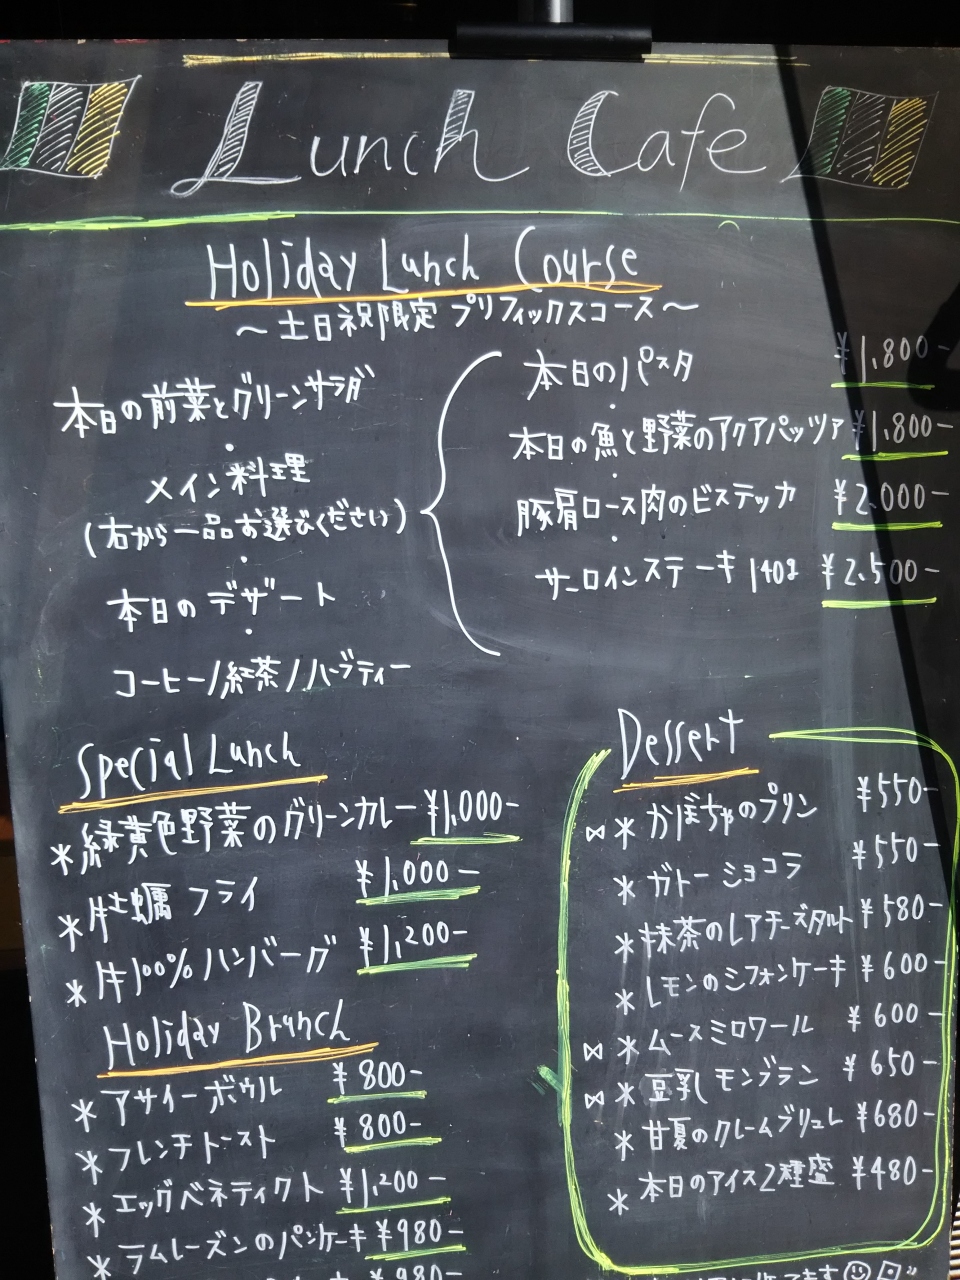 Lunch Cafe
Holiday Lunch Course
～土日祝限定 プリフィックスコース～
本日の前菜とグリーンサラダ
・
メイン料理
(右から一品お選びください)
・
本日のデザート
・
コーヒー/紅茶/ハーブティー
本日のパスタ ¥1,800-
・
本日の魚と野菜のアクアパッツァ ¥1,800-
・
豚肩ロース肉のビステッカ ¥2,000-
・
サーロインステーキ 140g ¥2,500-
Special Lunch
*緑黄色野菜のグリーンカレー ¥1,000-
*牡蠣フライ ¥1,000-
*牛100%ハンバーグ ¥1,200-
Holiday Brunch
*アサイーボウル ¥800-
*フレンチトースト ¥800-
*エッグベネディクト ¥1,200-
*ラムレーズンのパンケーキ ¥980-
¥980-
Dessert
⋈ *かぼちゃのプリン ¥550-
*ガトーショコラ ¥550-
*抹茶のレアチーズタルト ¥580-
*レモンのシフォンケーキ ¥600-
⋈ *ムースミロワール ¥600-
⋈ *豆乳モンブラン ¥650-
*甘夏のクレームブリュレ ¥680-
*本日のアイス2種盛 ¥480-